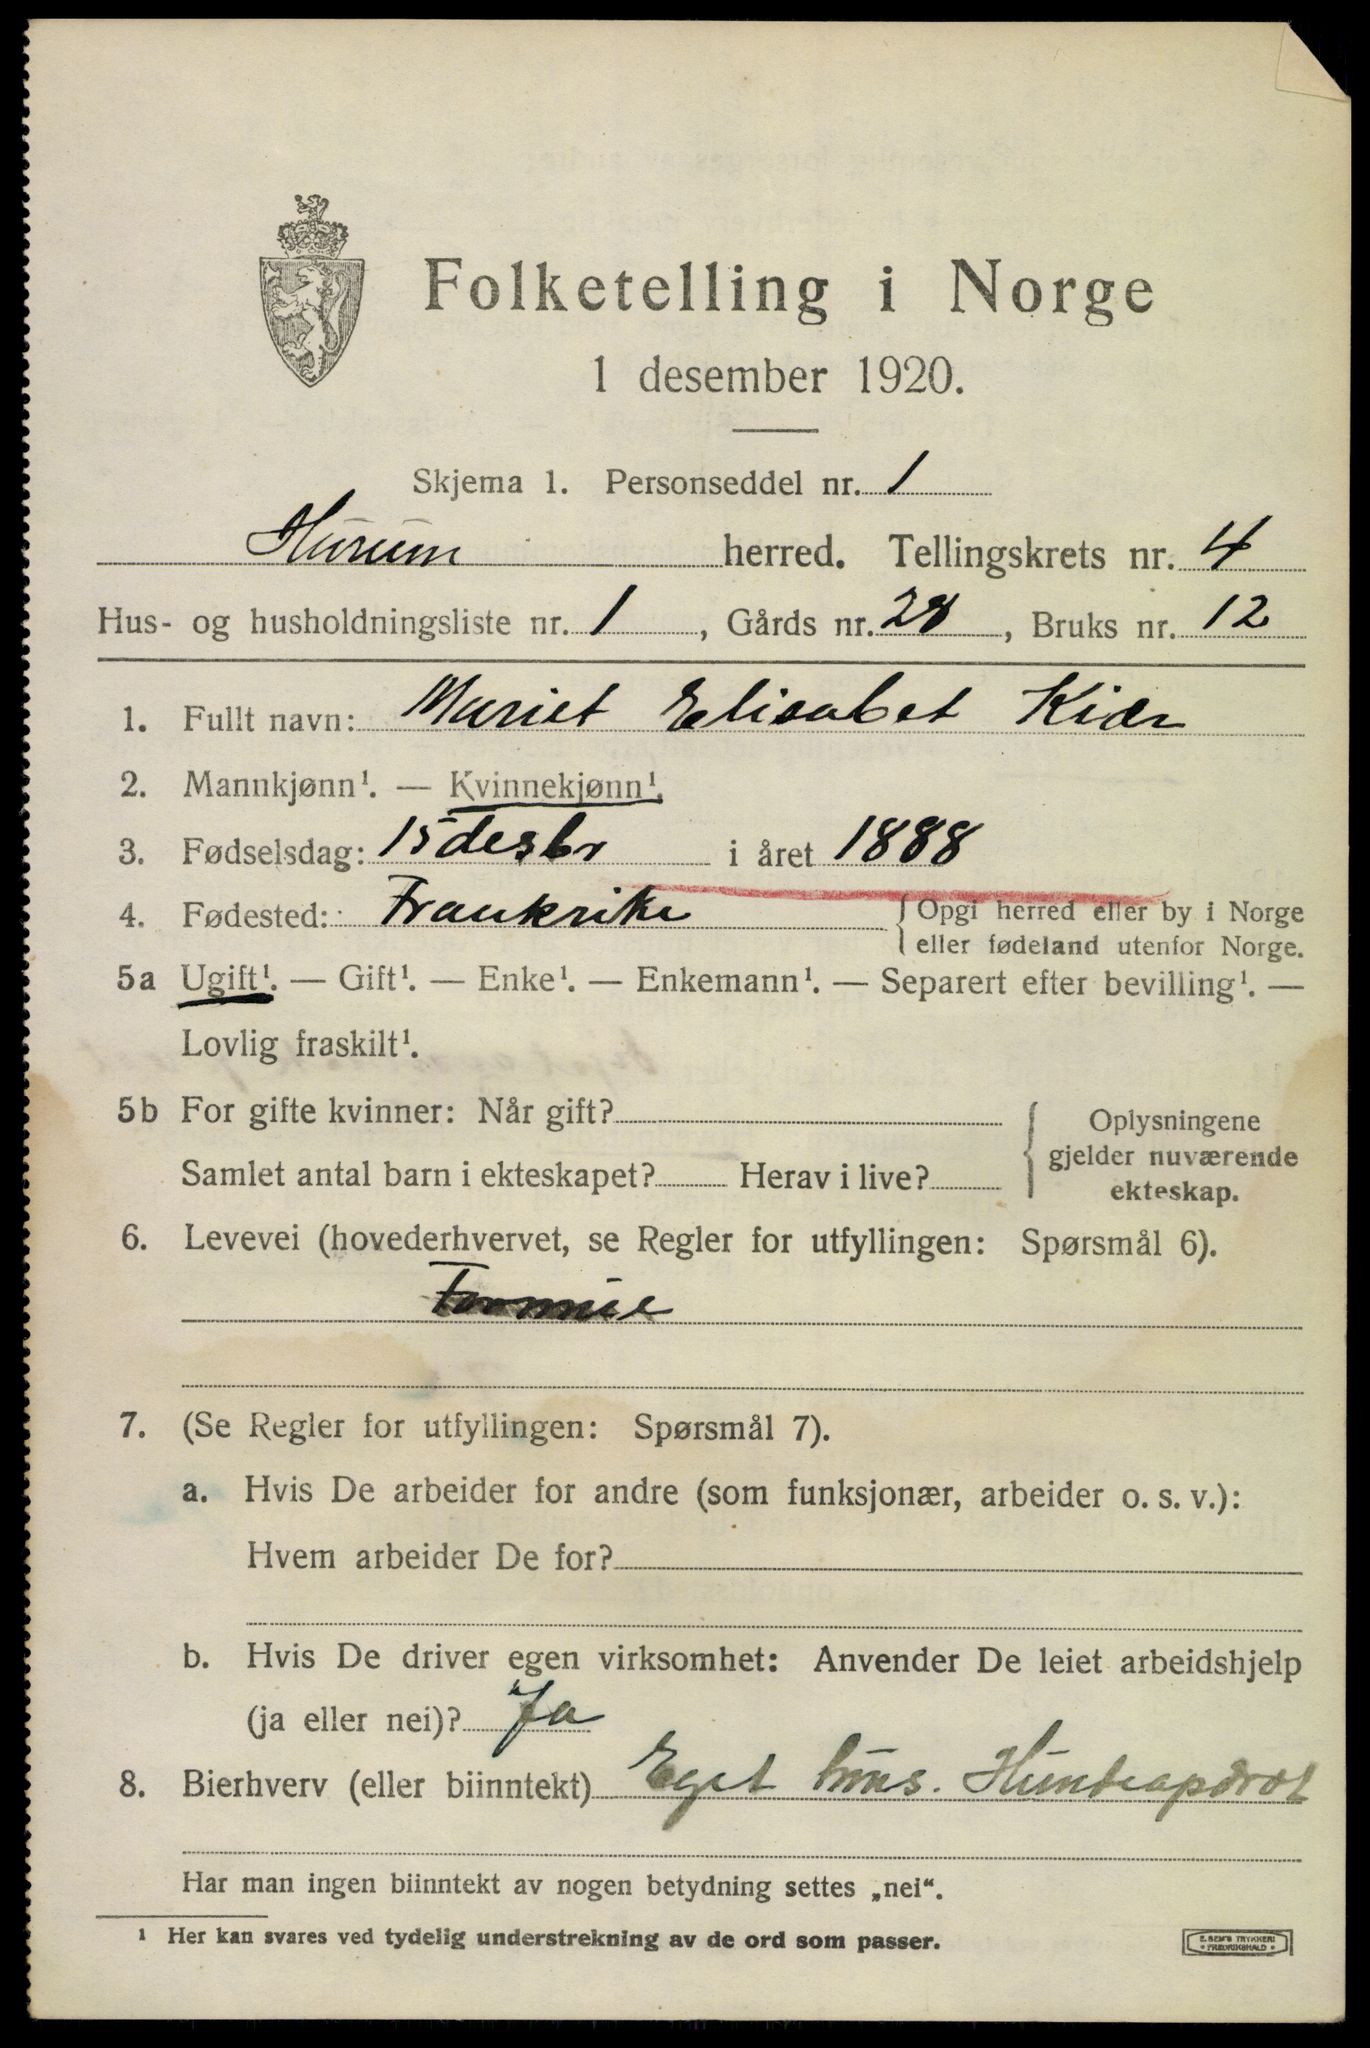 Folketelling i Norge
1 desember 1920.
Skjema 1. Personseddel nr. 1
Hurum herred. Tellingskrets nr. 4
Hus- og husholdningsliste nr. 1, Gårds nr. 28, Bruks nr. 12
1. Fullt navn: Mariet Elisabet Kiær
2. Mannkjønn¹. — Kvinnekjønn¹.
3. Fødselsdag: 15 desbr i året 1888
4. Fødested: Frankrike {Opgi herred eller by i Norge
eller fødeland utenfor Norge.
5a Ugift¹. — Gift¹. — Enke¹. — Enkemann¹. — Separert efter bevilling¹. —
Lovlig fraskilt¹.
5b For gifte kvinner: Når gift?
Samlet antal barn i ekteskapet? Herav i live?
{Oplysningene
gjelder nuværende
ekteskap.
6. Levevei (hovederhvervet, se Regler for utfyllingen: Spørsmål 6).
Formue
7. (Se Regler for utfyllingen: Spørsmål 7).
a. Hvis De arbeider for andre (som funksjonær, arbeider o. s. v.):
Hvem arbeider De for?
b. Hvis De driver egen virksomhet: Anvender De leiet arbeidshjelp
(ja eller nei)? Ja
8. Bierhverv (eller biinntekt) Eget hus. Hundeopdræt
Har man ingen biinntekt av nogen betydning settes „nei“.
¹ Her kan svares ved tydelig understrekning av de ord som passer.
E. SEM'S TRYKKERI
FREDRIKSHALD